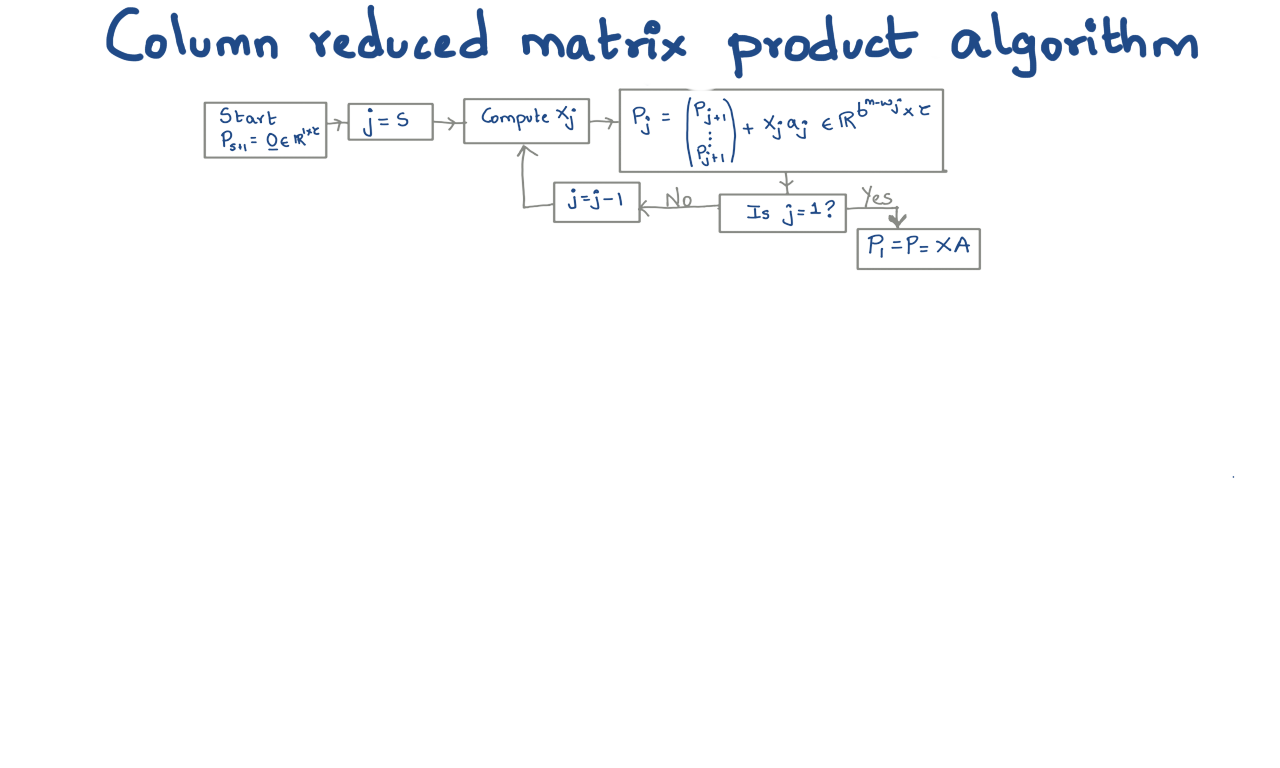 Column reduced matrix product algorithm
Start
P_{s+1} = 0 ∈ ℝ^{1×τ}
j = s
Compute X_j
P_j = (P_{j+1} ⋮ P_{j+1}) + X_j a_j ∈ ℝ^{b^{m-w_j} × τ}
j = j-1
No
Is j = 1?
Yes
P_1 = P = XA